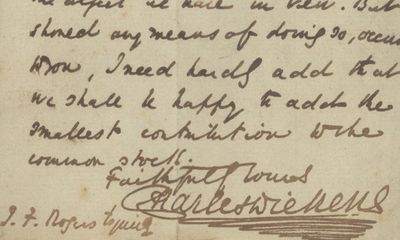 the object we have in view. But
should any means of doing so, occur
soon, I need hardly add that
we shall be happy to add the
smallest contribution to the
common stock.
Faithfully Yours
Charles Dickens
J. F. Rogers Esquire